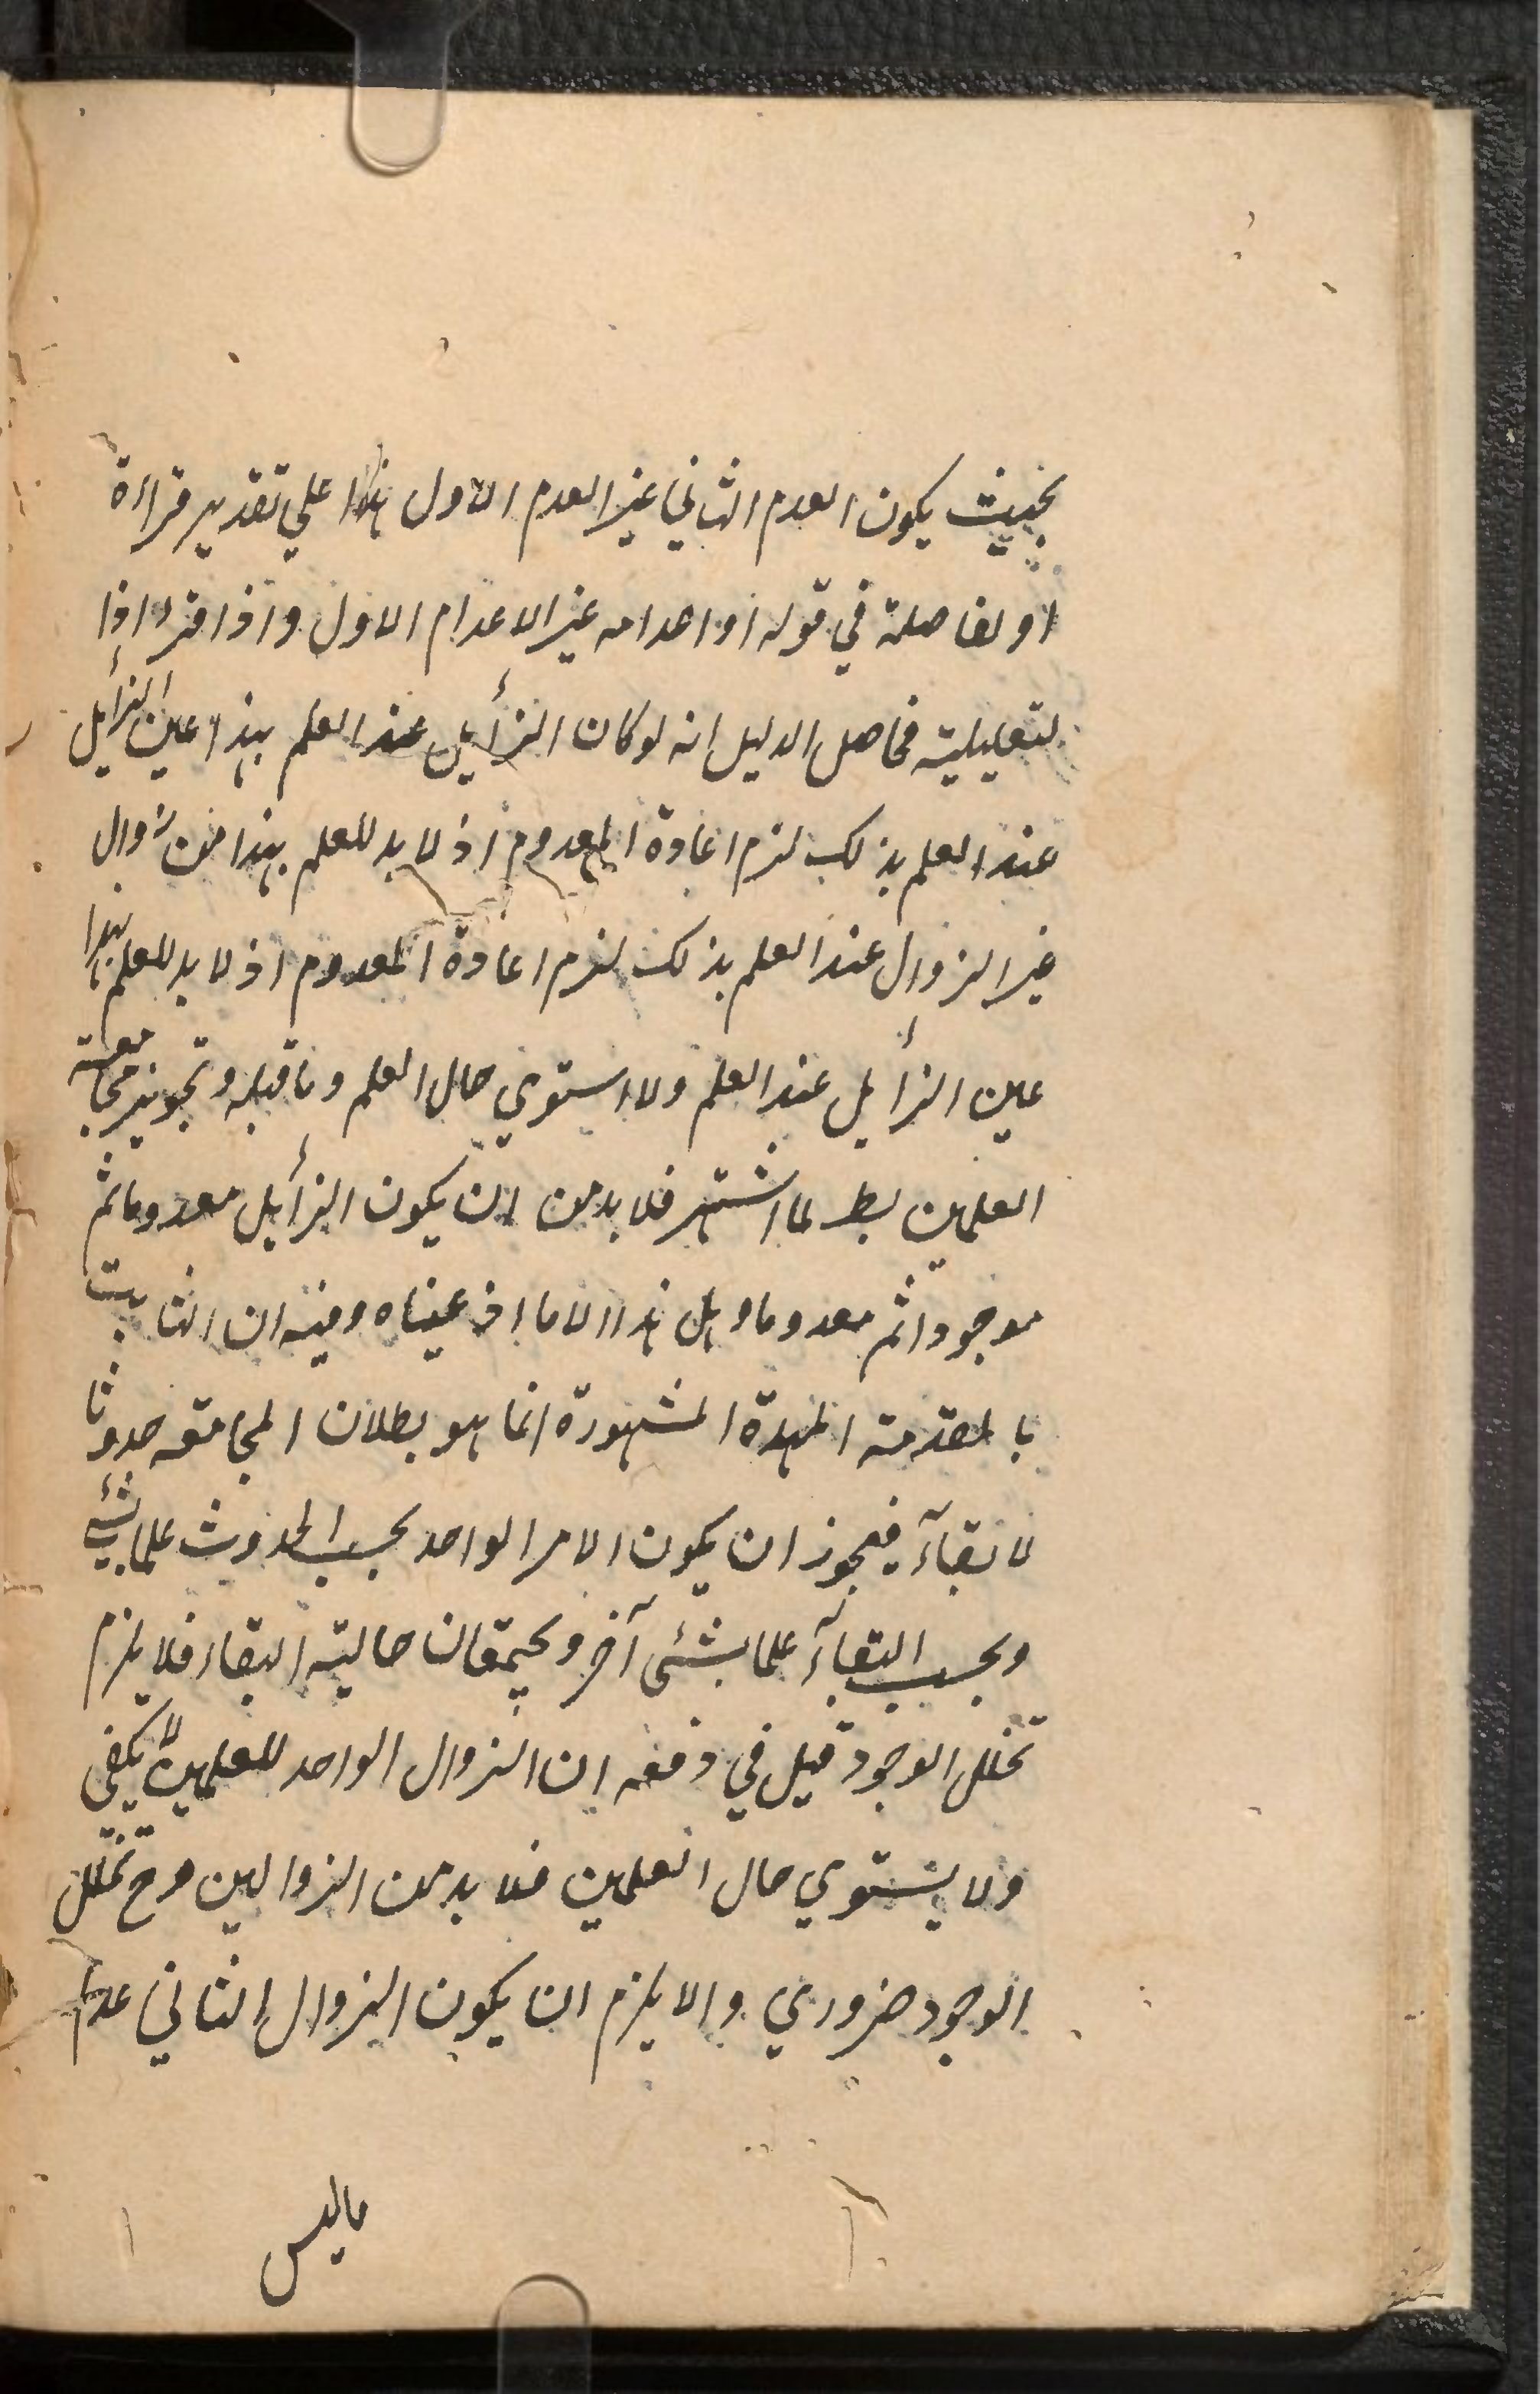 بحيث يكون العدم الثاني غير العدم الاول هذا علي تقدير قراءة
او لفاصلة في قوله او اعدامه غير الاعدام الاول واذا قرء اذا
لتعليلية فحاصل الدليل انه لو كان الزائيل عند العلم بهذا عين الزائيل
عند العلم بذلك لزم اعادة المعدوم اذ لا بد للعلم بهذا من زوال
غير الزوال عند العلم بذلك لزم اعادة المعدوم اذ لا بد للعلم بهذا
عين الزائيل عند العلم ولا استوي حال العلم وما قبله وتجويز مجامعة
العلمين بط لما اشتهر فلا بد من ان يكون الزائيل معدوما ثم
موجودا ثم معدوما وهل هذا الا ما ادعيناه وفيه ان الثابت
بالمقدمة الممهدة المشهورة انما هو بطلان المجامعة حدوثا
لا بقاء فيجوز ان يكون الامر الواحد بحسب الحدوث علما بشئ
وبحسب البقاء علما بشئى آخر ويجتمعان حالية البقاء فلا يلزم
تخلل الوجود قيل في دفعه ان الزوال الواحد للعلمين لا يكفي
ولا يستوي حال العلمين فلا بد من الزوالين وح تخلل
الوجود ضروري والا يلزم ان يكون الزوال الثاني عدم
ماليس